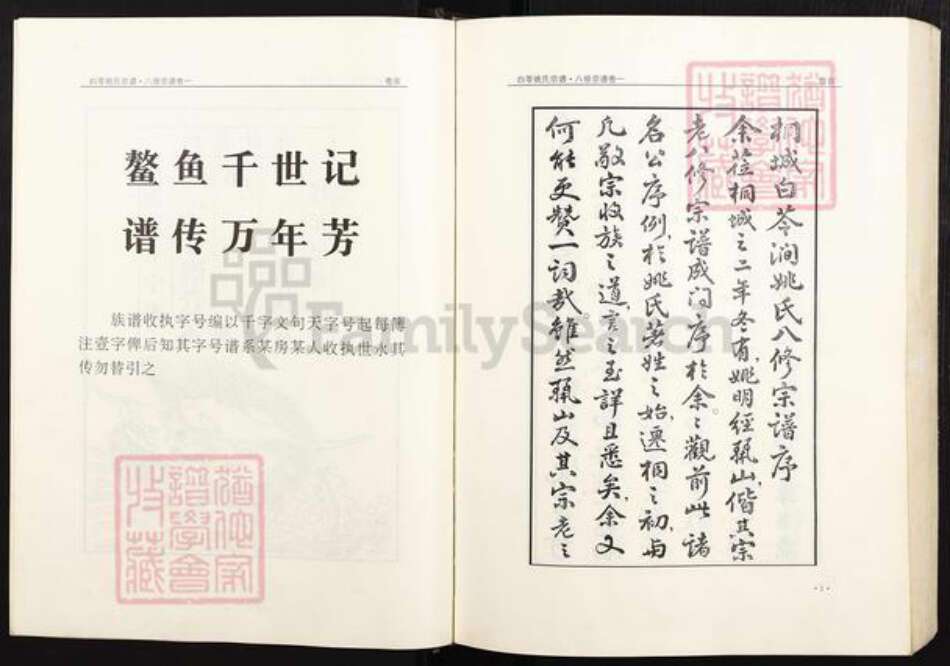 白苓姚氏宗谱·八修宗谱卷一 卷首
鳌鱼千世记
谱传万年芳
族谱收执字号编以千字文句天字号起每簿
注壹字俾后知其字号谱系某房某人收执世永其
传勿替引之
谱学会
收藏
白苓姚氏宗谱·八修宗谱卷一 卷首
桐城白苓涧姚氏八修宗谱序
余莅桐城之二年冬有姚明经珮山偕其宗
老八修宗谱成问序于余余观前此诸
名公序例于姚氏著姓之始迁桐之初与
凡敬宗收族之道言之至詳且悉矣余又
何能更赞一词哉虽然珮山及其宗老之
·1·
谱学会
收藏
FamilySearch